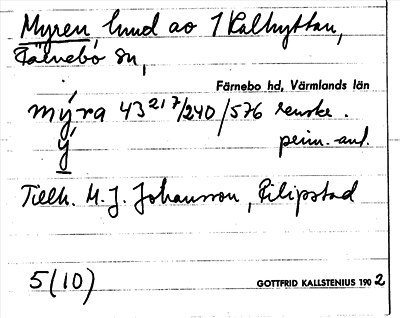 Myren, hmd av 1 Kalhyttan,
Färnebo sn,
Färnebo hd, Värmlands län
mýra 43 217/240/576 renske.
ý prim.-ant.
Tillh. M. J. Johansson, Filipstad
5(10)
GOTTFRID KALLSTENIUS 1902